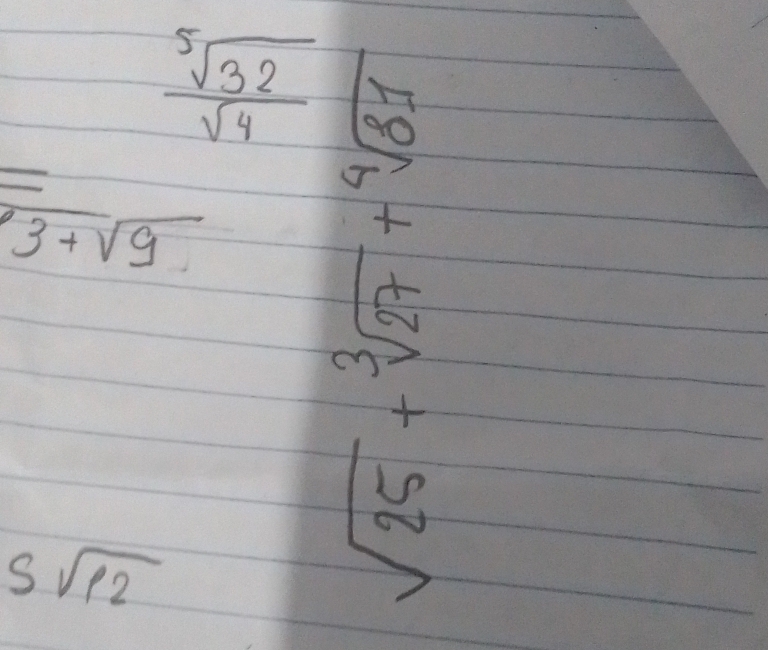 ⁵√32
√4
3 + √9
√25 + ³√27 + ⁴√81